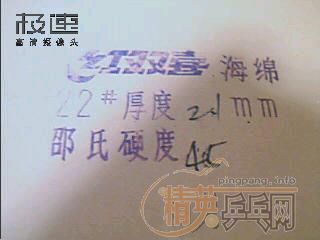 极速
高清摄像头
红双喜 海绵
22#厚度2.1mm
邵氏硬度45
pingpang.info
精英乒乓网